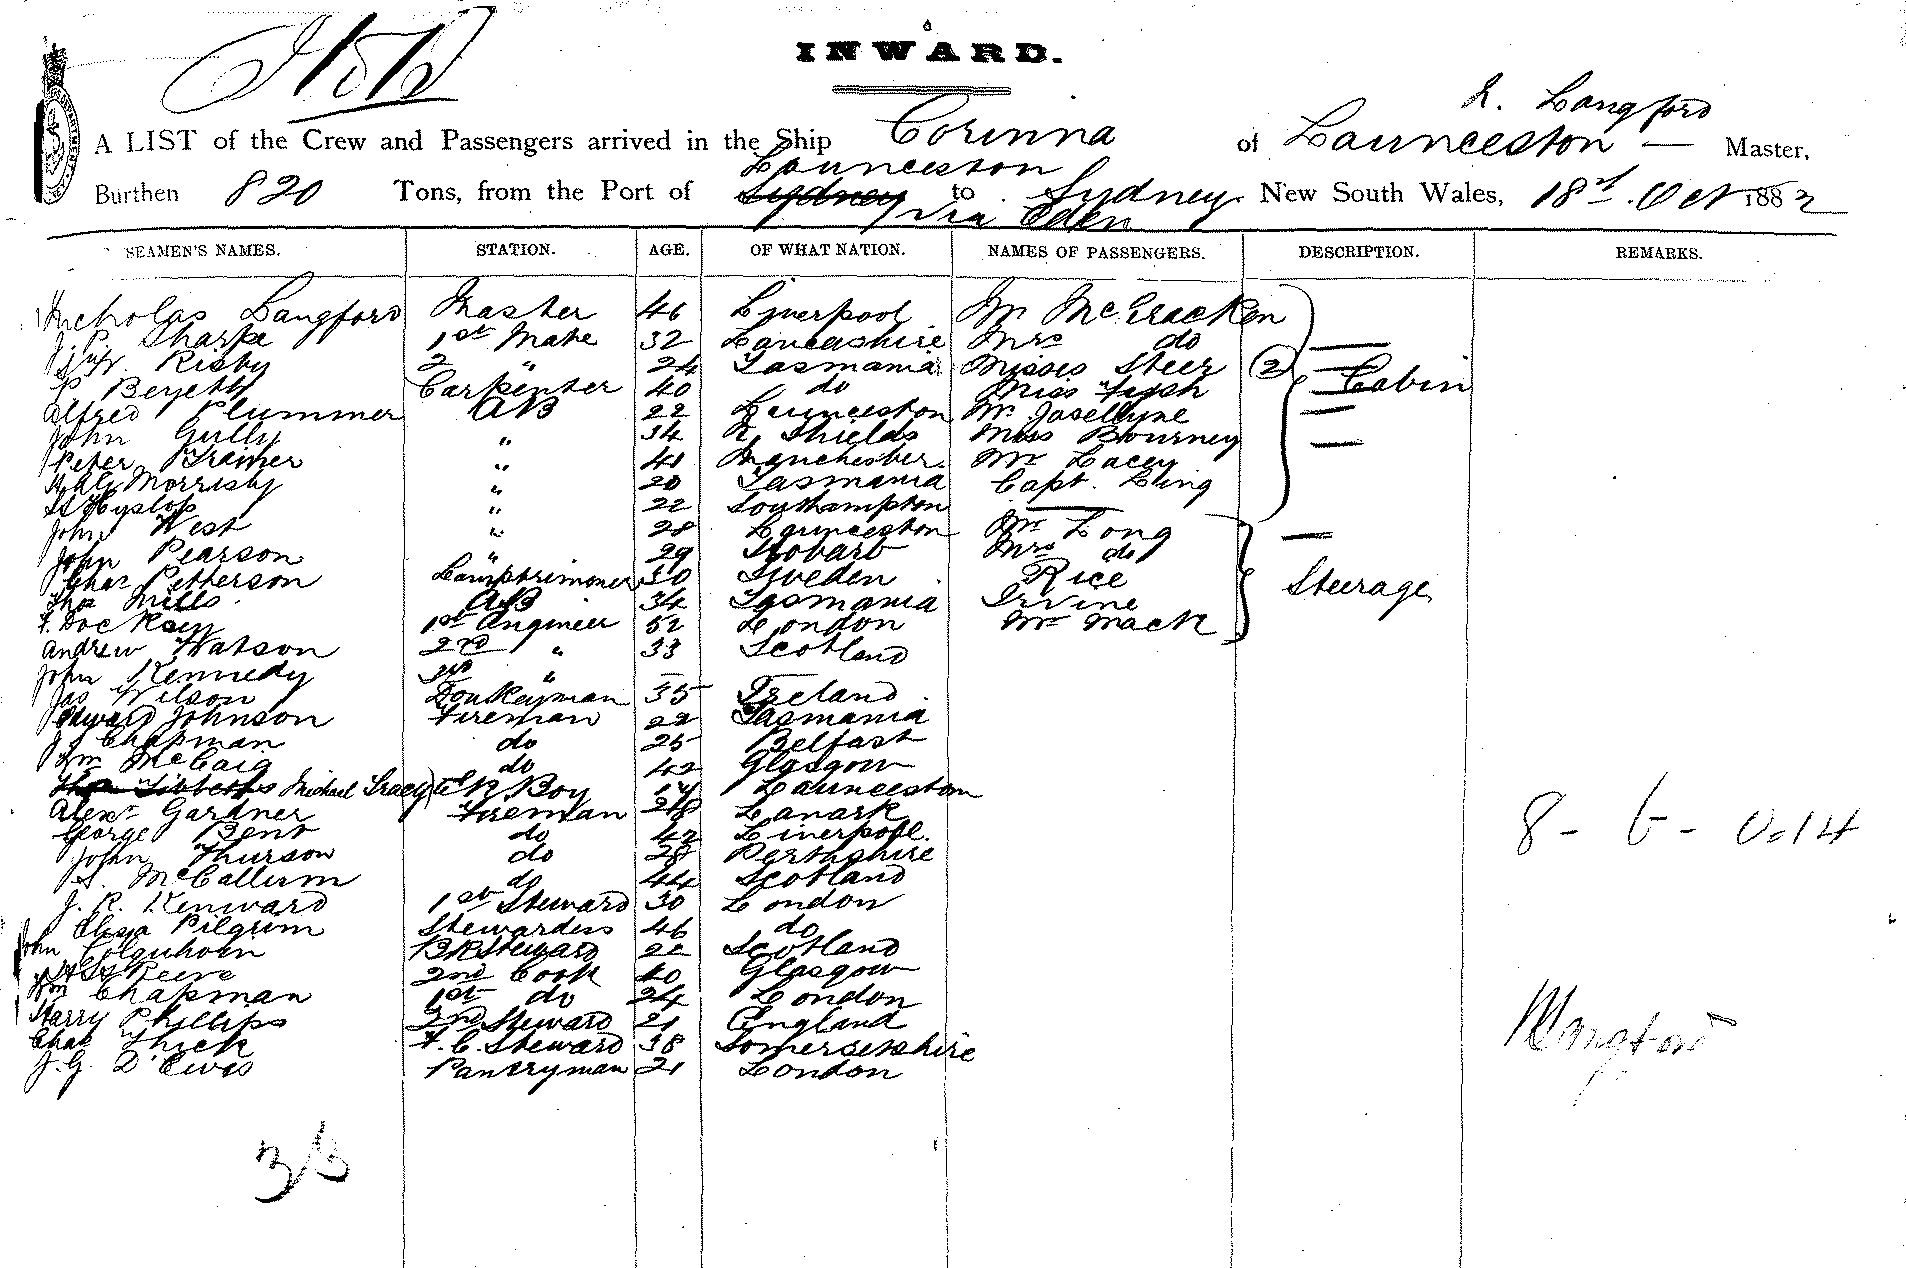 INWARD.
N. Langford
A LIST of the Crew and Passengers arrived in the Ship Corinna of Launceston — Master,
Launceston
Burthen 820 Tons, from the Port of Sydney to Sydney New South Wales, 18th Oct 1882
via Eden
SEAMEN'S NAMES. STATION. AGE. OF WHAT NATION. NAMES OF PASSENGERS. DESCRIPTION. REMARKS.
Nicholas Langford Master 46 Liverpool Mr McCracken
Sharpe 1st Mate 32 Lancashire Mrs do —
Risby 2 " 24 Tasmania Misses Steer (2) — Cabin
Carpenter 40 do Miss —
Alfred Plummer AB 22 Launceston Mr Josellyne —
John Gully " 34 N. Shields Miss Bourney —
Peter Kramer " 41 Manchester Mr Lacey
Morrisby " 20 Tasmania Capt. Ling
Hyslop " 22 Southampton
John West " 28 Launceston Mr Long
John Pearson " 29 Hobart Mrs do —
Chas Petterson Lamptrimmer 30 Sweden Rice Steerage
Thos Mills AB 34 Tasmania Irvine
1st Engineer 52 London Mr Mack
Andrew Watson 2nd " 33 Scotland
John Kennedy 3rd " —
Jas Wilson Donkeyman 35 Ireland
Edward Johnson Fireman 22 Tasmania
J. Chapman do 25 Belfast
Wm McCaig do 42 Glasgow
Michael Tracy Boy 17 Launceston
Alexr Gardner Fireman 28 Lanark
George Bent do 42 Liverpool 8 - 6 - 0.14
John Thurson do 28 Perthshire
McCallum do 44 Scotland
J. R. Kenward 1st Steward 30 London
Eliza Pilgrim Stewardess 46 do
John Colquhoun BK Steward 22 Scotland
Reeve 2nd Cook 40 Glasgow
Wm Chapman 1st do 24 London
Harry Phillips 2nd Steward 21 England
Chas Thick F. C. Steward 38 Somersetshire
N Langford
J. G. D'Ewes Pantryman 21 London